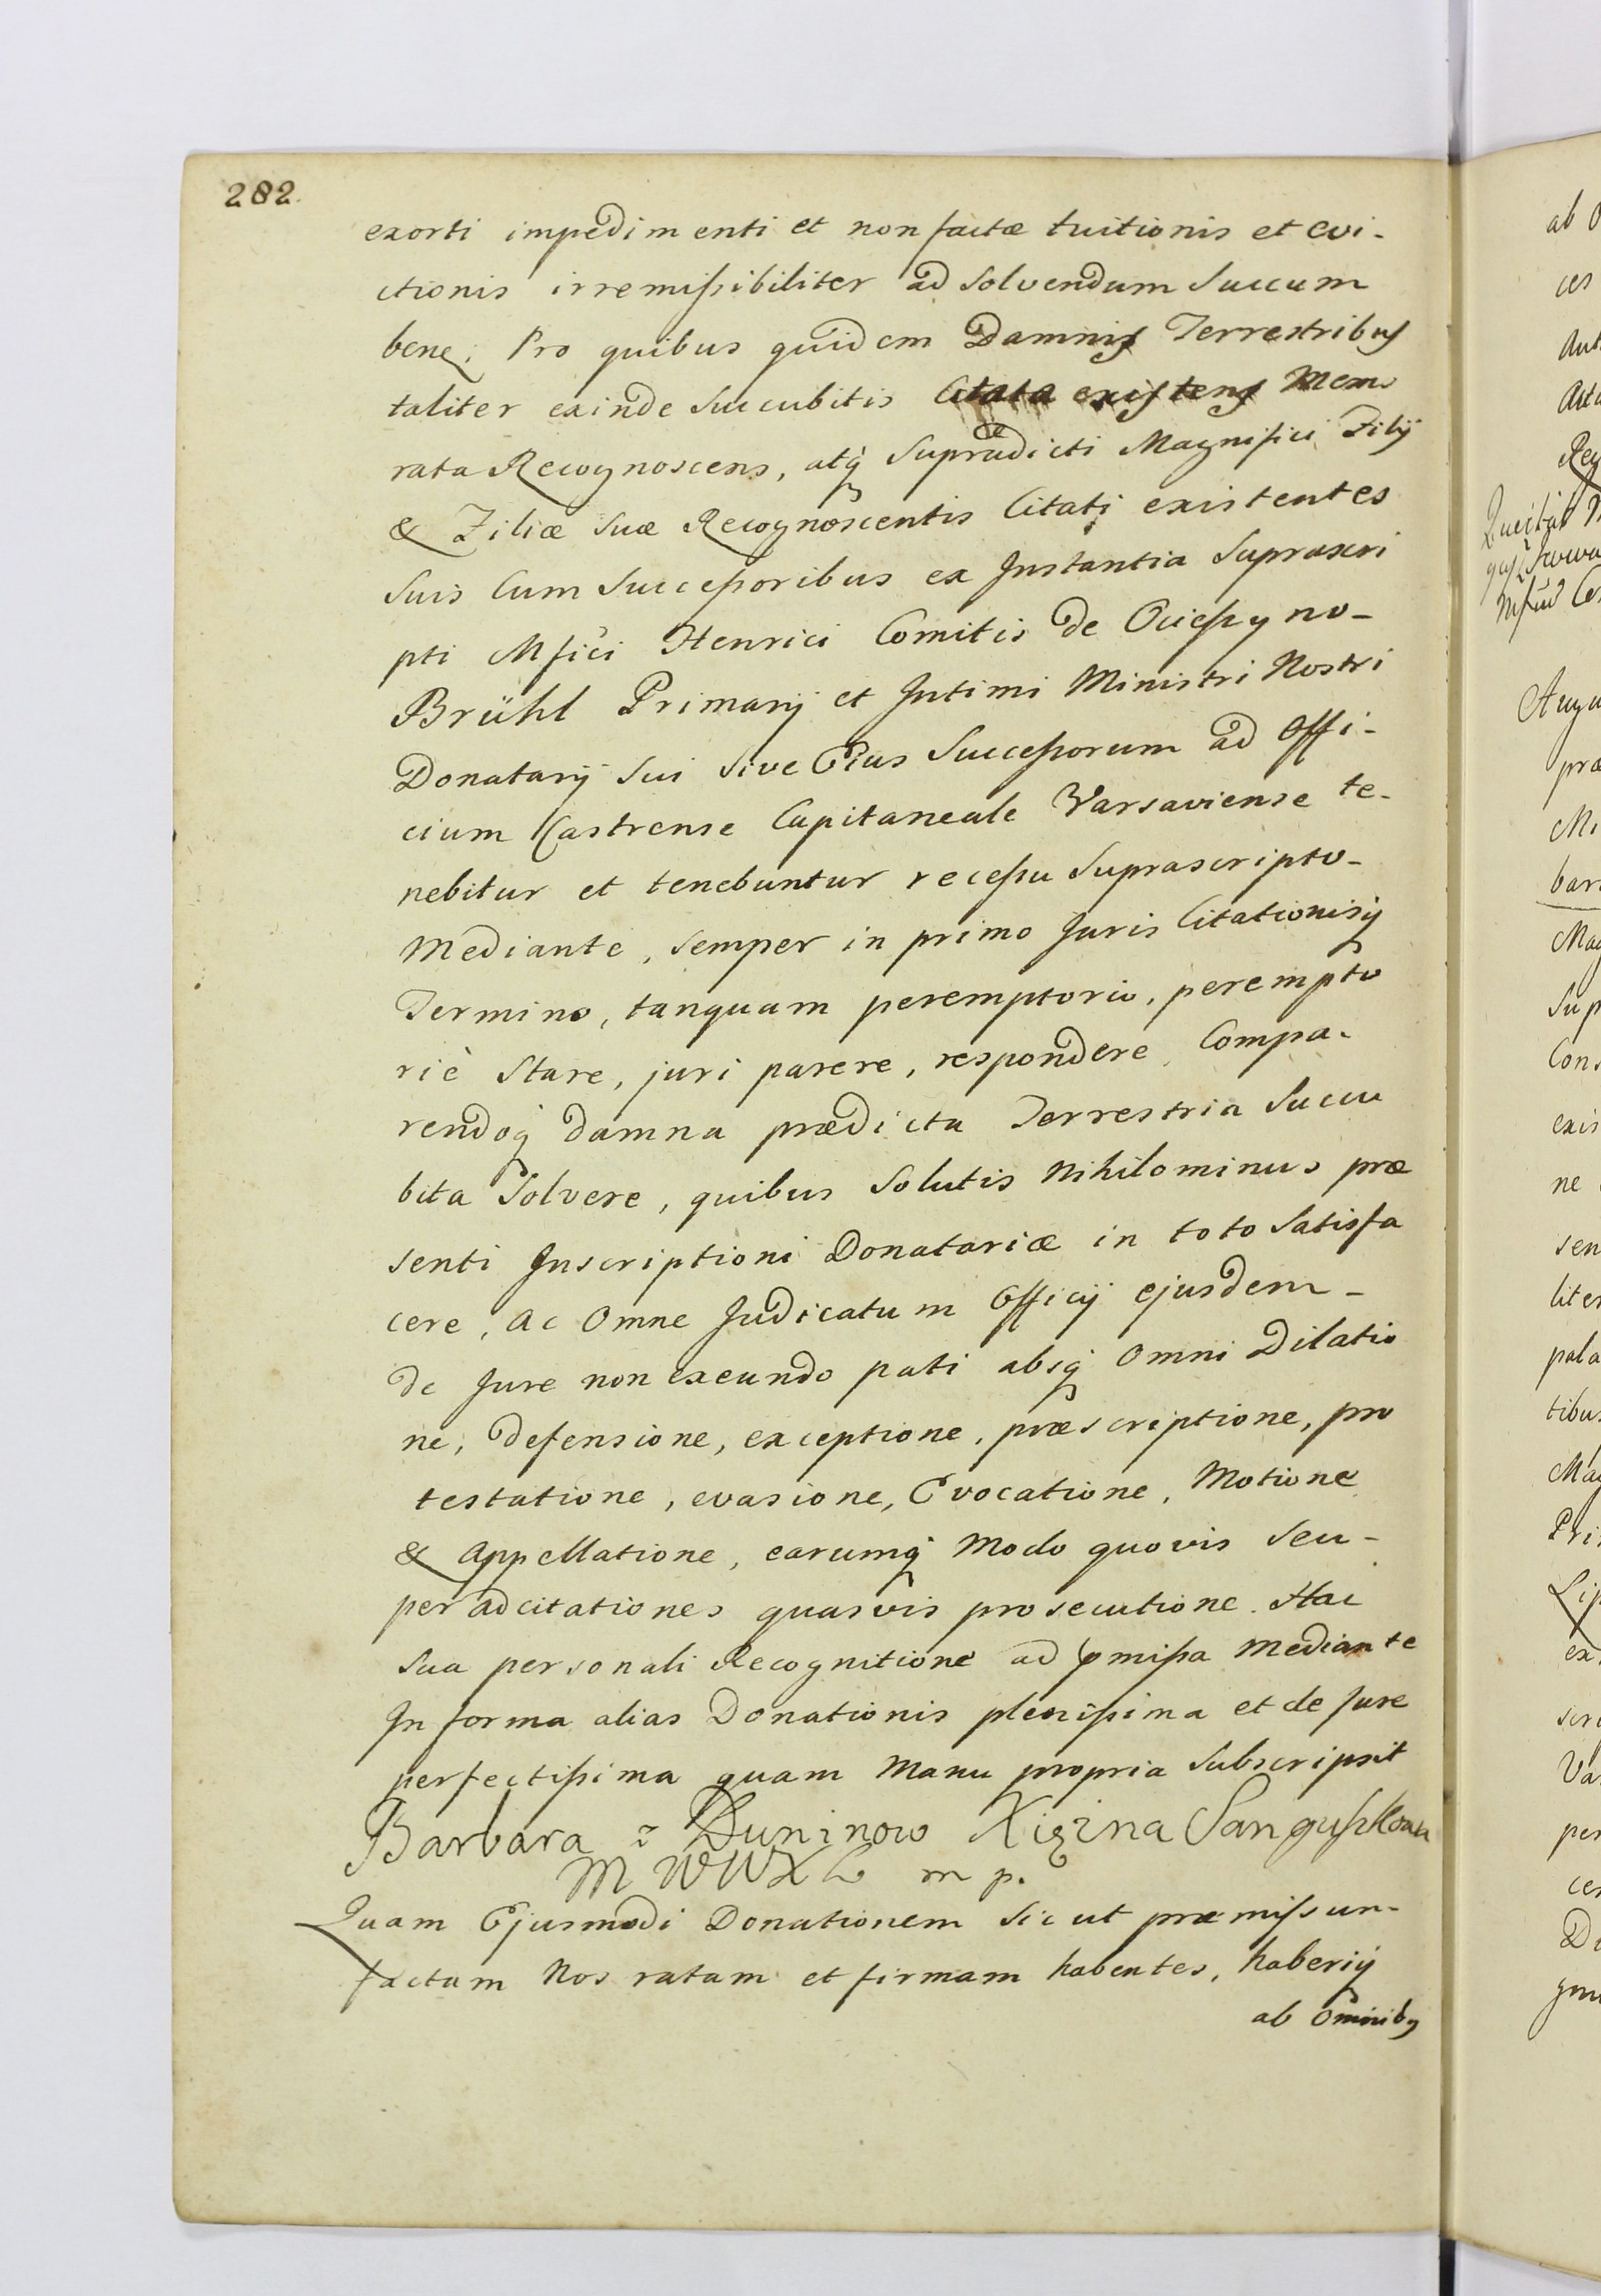 282.
exorti impedimenti et non factæ tuitionis et evi-
ctionis irremissibiliter ad solvendum Succum
bene; Pro quibus quidem Damnis Terrestribus
taliter exinde Succubitis Citata existens Memo
rata Recognoscens, atq̀ Supradicti Magnifici Filij
& Filiæ suæ Recognoscentis Citati existentes
Suis Cum Successoribus ex Instantia Suprascri
pti Mfici Henrici Comitis de Ociessyno-
Brühl Primarij et Intimi Ministri Nostri
Donatarij Sui sive Eius Successorum ad Offi-
cium Castrense Capitaneale Varsaviense te-
nebitur et tenebuntur recessu Suprascripto-
Mediante, semper in primo Juris Citationisq
Termino, tanquam peremptorio, perempto
riè Stare, juri parere, respondere, Compa-
rendoq̀ damna prædicta Terrestria Succu
bita Solvere, quibus Solutis Nihilominus præ
senti Inscriptioni Donatariæ in toto Satisfa
cere, ac Omne Judicatum Officij ejusdem-
de Jure non exeundo pati absq̀ Omni Dilatio
ne, defensione, exceptione, præscriptione, pro
testatione, evasione, Evocatione, Motione
& Appellatione, earumq̀ Modo quovis Seu-
per adcitationes quasvis prosecutione. Hac
sua personali Recognitione ad pmissa Mediante
In forma alias Donationis plenissima et de Jure
perfectissima quam Manu propria Subscripsit
Barbara z Duninow Xiężna Sanguszkowa
M W W X L m p.
Quam Ejusmodi Donationem Sicut præmissum-
factam Nos ratam et firmam habentes, haberiq
ab Omnibq